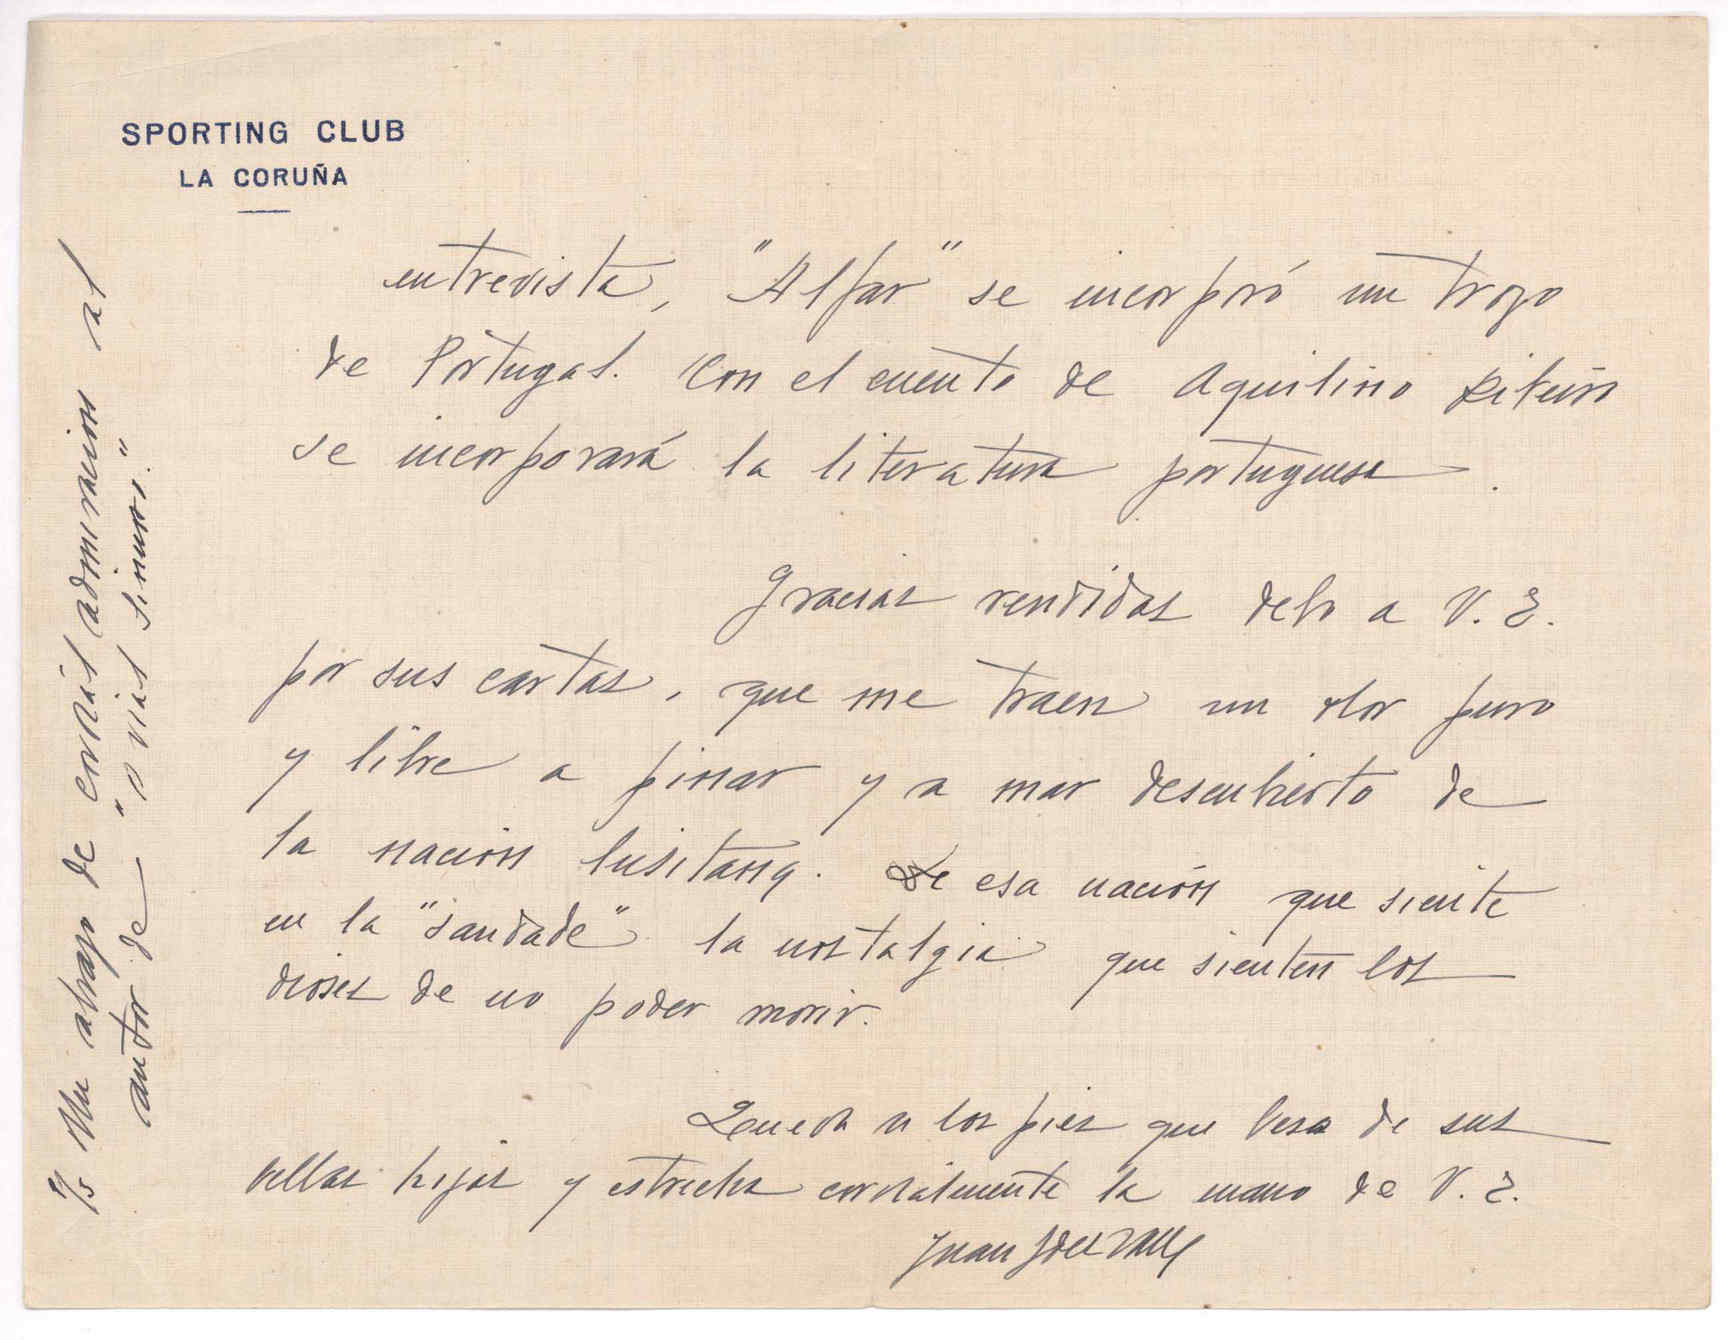 SPORTING CLUB
LA CORUÑA
entrevista, "Alfar" se incorporó un trozo
de Portugal. Con el cuento de Aquilino
se incorporará la literatura portuguesa.
Gracias rendidas debo a V. E.
por sus cartas, que me traen un olor puro
y libre a pinar y a mar descubierto de
la nación lusitana. De esa nación que siente
en la "saudade" la nostalgia que sienten los
dioses de no poder morir.
Queda a los pies que besa de sus
bellas hijas y estrecha cordialmente la mano de V. E.
Juan G del Valle
P/s Un abrazo de cordial admiración al
autor de "O